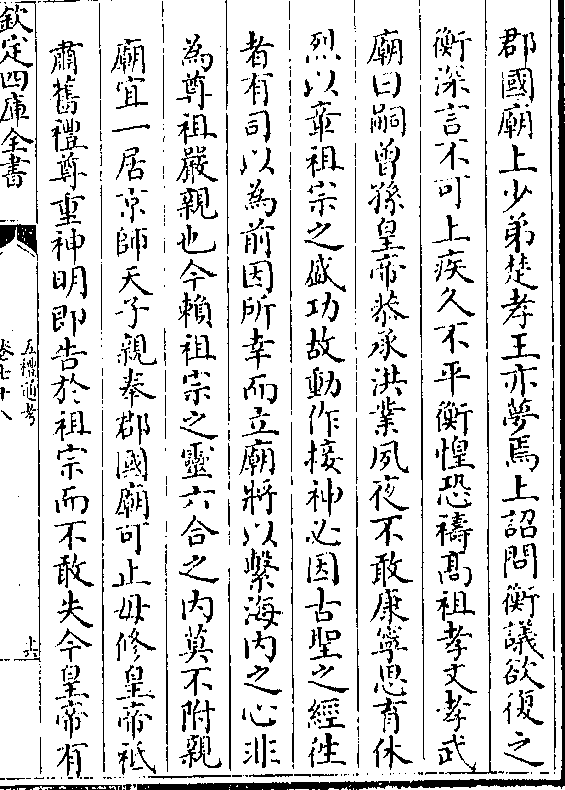 郡國廟上少弟楚孝王亦夢焉上詔問衡議欲復之
衡深言不可上疾久不平衡惶恐禱髙祖孝文孝武
廟曰嗣曾孫皇帝恭承洪業夙夜不敢康寧思育休
烈以章祖宗之盛功故動作接神必因古聖之經徃
者有司以為前因所幸而立廟將以繫海内之心非
為尊祖嚴親也今賴祖宗之靈六合之内莫不附親
廟宜一居京師天子親奉郡國廟可止毋修皇帝祗
肅舊禮尊重神明即告於祖宗而不敢失今皇帝有
欽定四庫全書
五禮通考
卷七十八